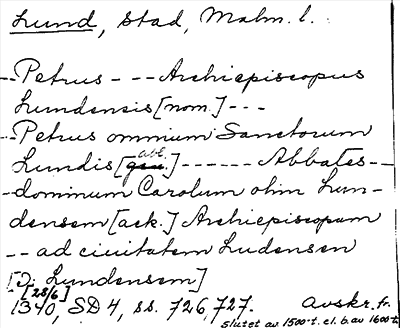 Lund, stad, Malm. l.
-- Petrus - -- Archiepiscopus
Lundensis [nom.] ---
-- Petrus omnium Sanctorum
abl.
Lundis [gen.] ------ Abbates --
-- dominum Carolum olim Lun-
densem [ack.] Archiepiscopum
-- ad ciuitatem Ludensen
[D: Lundensem]
28/6]
1340, SD 4, ss. 726, 727. Avskr. fr.
slutet av 1500-t. el. b. av 1600-t.